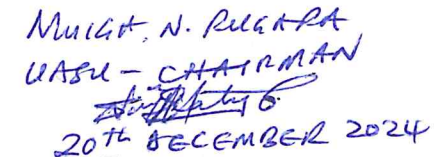 MUIGA. N. RUGARA
UASU - CHAIRMAN
20th DECEMBER 2024